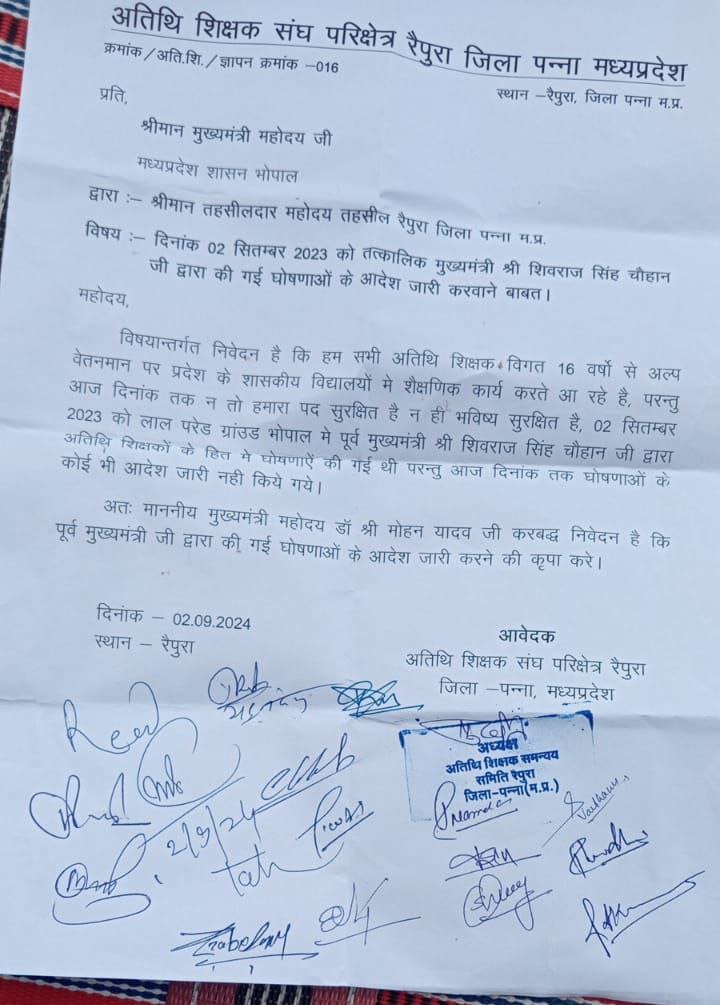 अतिथि शिक्षक संघ परिक्षेत्र रैपुरा जिला पन्ना मध्यप्रदेश
क्रमांक/अति.शि./ज्ञापन क्रमांक –016
स्थान –रैपुरा, जिला पन्ना म.प्र.
प्रति,
श्रीमान मुख्यमंत्री महोदय जी
मध्यप्रदेश शासन भोपाल
द्वारा :– श्रीमान तहसीलदार महोदय तहसील रैपुरा जिला पन्ना म.प्र.
विषय :– दिनांक 02 सितम्बर 2023 को तत्कालिक मुख्यमंत्री श्री शिवराज सिंह चौहान
जी द्वारा की गई घोषणाओं के आदेश जारी करवाने बाबत।
महोदय,
विषयान्तर्गत निवेदन है कि हम सभी अतिथि शिक्षक विगत 16 वर्षो से अल्प
वेतनमान पर प्रदेश के शासकीय विद्यालयों मे शैक्षणिक कार्य करते आ रहे है, परन्तु
आज दिनांक तक न तो हमारा पद सुरक्षित है न ही भविष्य सुरक्षित है, 02 सितम्बर
2023 को लाल परेड ग्रांउड भोपाल मे पूर्व मुख्यमंत्री श्री शिवराज सिंह चौहान जी द्वारा
अतिथि शिक्षकों के हित मे घोषणाऐं की गई थी परन्तु आज दिनांक तक घोषणाओं के
कोई भी आदेश जारी नही किये गये।
अतः माननीय मुख्यमंत्री महोदय डॉ श्री मोहन यादव जी करबद्ध निवेदन है कि
पूर्व मुख्यमंत्री जी द्वारा की गई घोषणाओं के आदेश जारी करने की कृपा करे।
दिनांक – 02.09.2024
स्थान – रैपुरा
आवेदक
अतिथि शिक्षक संघ परिक्षेत्र रैपुरा
जिला –पन्ना, मध्यप्रदेश
अध्यक्ष
अतिथि शिक्षक समन्वय
समिति रैपुरा
जिला-पन्ना(म.प्र.)
2/9/24